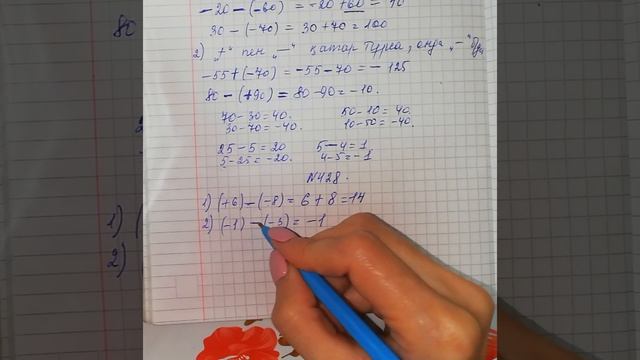 -20-(-60) = -20+60 = 40
30-(-70) = 30+70 = 100
2) „+" пен „-" қатар тұрса, онда „-"
-55+(-70) = -55-70 = - 125
80-(+90) = 80-90 = -10.
70-30=40. 50-10=40.
30-70=-40. 10-50=-40.
25-5=20 5-4=1
5-25=-20. 4-5=-1
N428.
1) (+6)-(-8)= 6+8=14
2) (-1)-(-5)= -1
80
1) (
2)